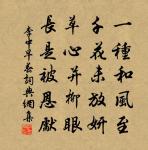 一種和風至
千花未放妍
草心并柳眼
長是被恩獻
李中早春詞典網集